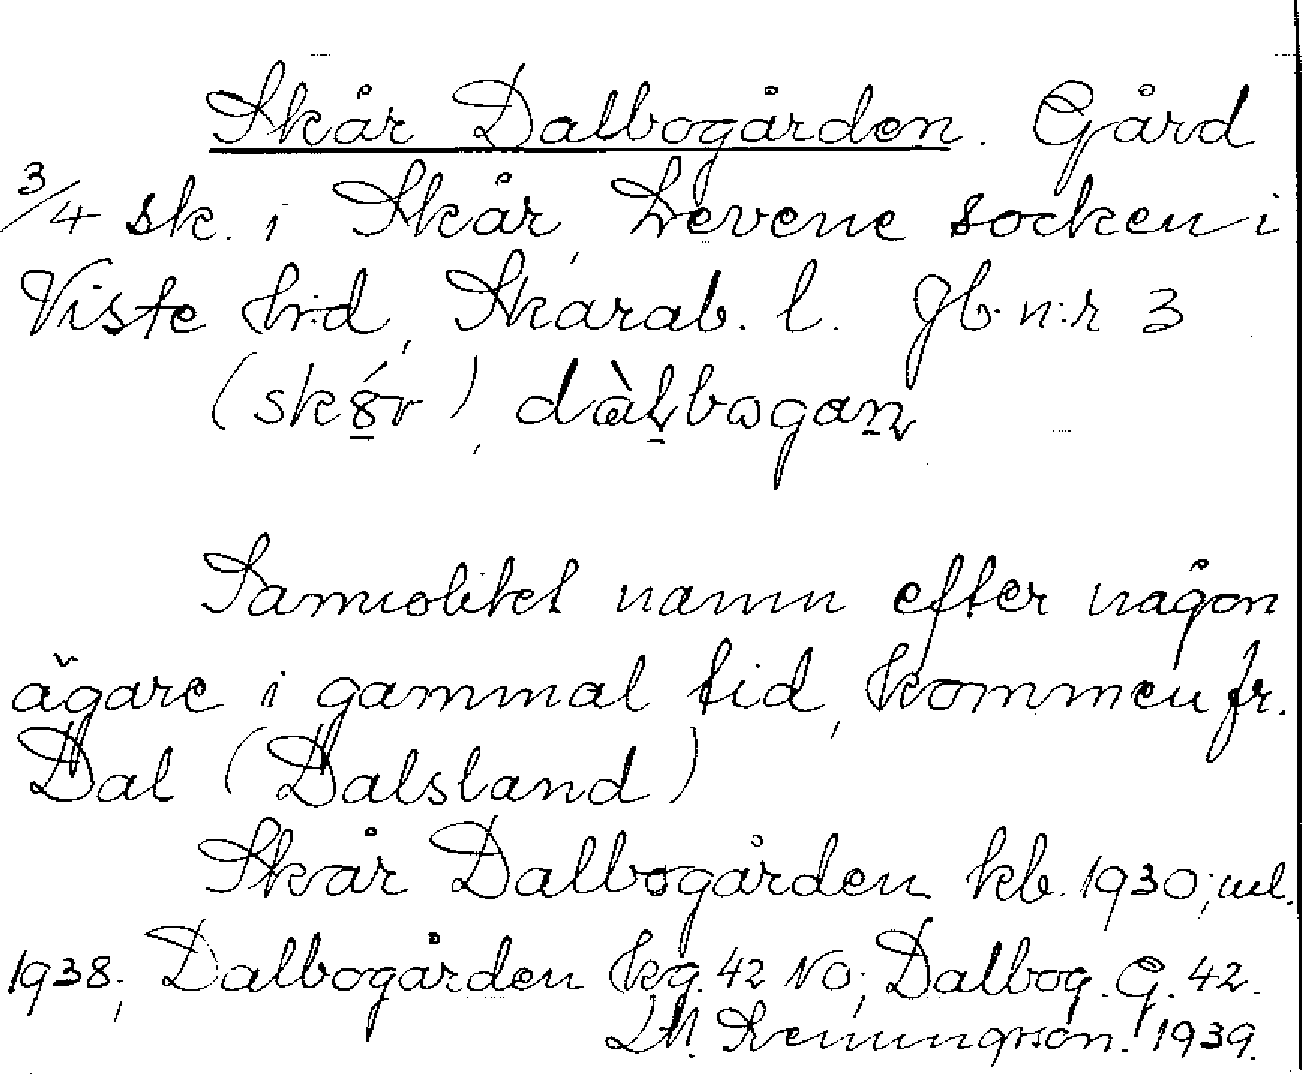 Skår Dalbogården. Gård
3/4 sk. i Skår, Levene socken i
Viste h:d, Skarab. l. Jb. n:r 3
(skó̱r), dàḷbogaṉ
Samolikt namn efter någon
ägare i gammal tid, kommen fr.
Dal (Dalsland)
Skår Dalbogården kb. 1930; ml.
1938; Dalbogården kg. 42 NO; Dalbog. G. 42.
1939.